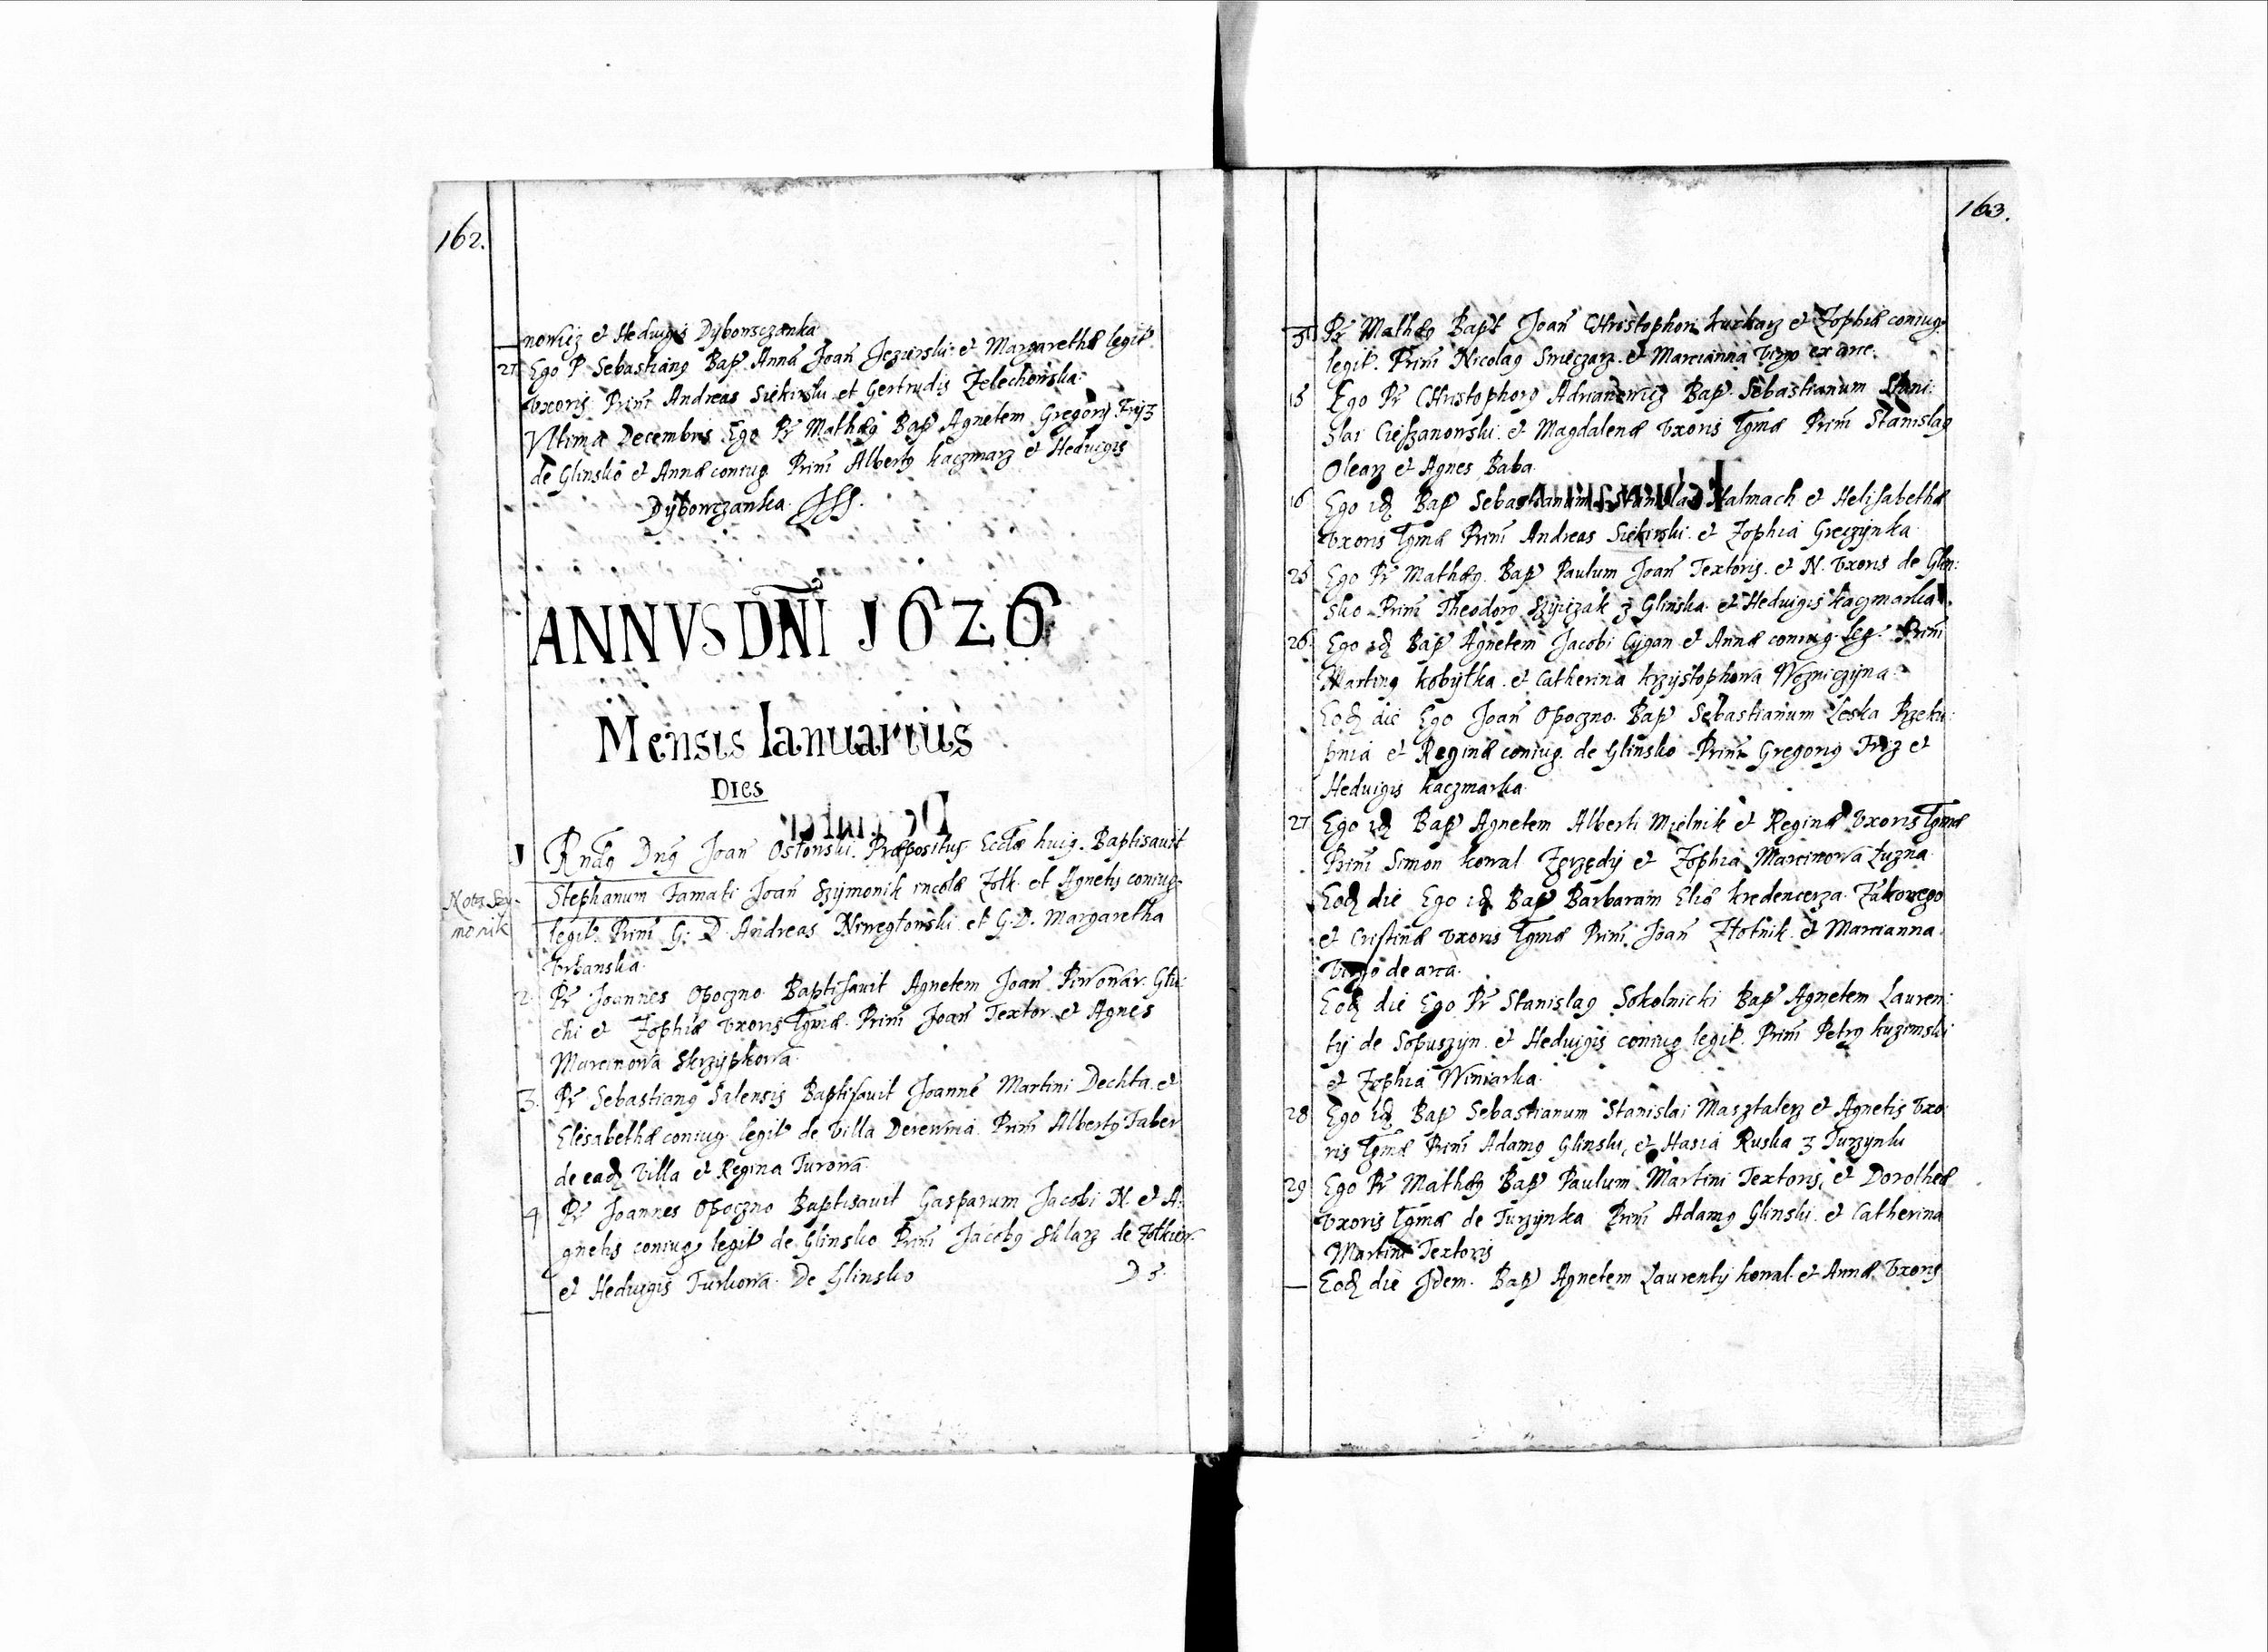 162.
nowicz et Hedvigis Dÿbowsczanka
27. Ego P Sebastianꝯ Bap Annā Joan Jezierski et Margarethæ legit.
vxoris Prim̄ Andreas Siekirski et Gertrudis Zelechowska.
Vltima Decembris Ego Pr̄ Mathæꝯ Bap Agnetem Gregorÿ Frÿz
de Glinsko et Annæ coniug. Prim̄ Albertꝯ kaczmarz et Hedvigis
Dÿbowczanka.
ANNVS DÑI 1626
Mensis Ianuarius
Dies
1 Rndꝯ Dnꝯ Joan Ostowski. Præpositus Eccłæ huiꝯ. Baptisavit
Stephanum Famati Joan Szÿmonik incolæ Zołk. et Agnetis coniug.
Nota Szÿ-
monik
legit. Prim̄ G: D. Andreas Niwegłowski et G.D. Margaretha
Vrbanska.
2. Pr̄ Joannes Opoczno Baptisavit Agnetem Joan Piwowar. Glu:
chi et Zophiæ vxoris Lgmæ. Prim̄ Joan Textor. et Agnes
Marcinowa Skrzypkowa.
3. Pr̄ Sebastianꝯ Salensis Baptisavit Joannē Martini Dechta. et
Elisabethæ coniug. legit de villa Derewnia. Prim̄ Albertꝯ Faber
de eadē villa et Regina Turowa.
4 Pr̄ Joannes Opoczno Baptisavit Gasparum Jacobi N. et A:
gnetis coniug. legit de Glinsko Prim̄ Jacobꝯ Sklarz de Zołkiew
et Hedvigis Turkowa. De Glinsko D 5.
163.
Pr̄ Mathæꝯ Bapt Joan Christophori kucharz et Zophiæ coniug.
legit. Prim̄ Nicolaꝯ Smeczarz. et Marcianna virgo ex arce.
15 Ego Pr̄ Christophorꝯ Adrianowicz Bap. Sebastianum Stani:
slai Cieszanowski. et Magdalenæ vxoris Lgmæ Prim̄ Stanislaꝯ
Olearz et Agnes Baba.
16 Ego idē Bap Sebastianum Stanislai Stalmach et Helisabethæ
vxoris Lgmæ Prim̄ Andreas Siekirski. et Zophia Greczÿnka.
25 Ego Pr̄ Mathæꝯ. Bap Paulum Joan Textoris. et N. vxoris de Glin:
sko Prim̄ Theodorꝯ Szÿiczak z Glinska. et Hedvigis kaczmarka.
26. Ego idē Bap Agnetem Jacobi Cÿgan et Annæ coniug. leg. Prim̄
Martinꝯ kobÿłka. et Catherina krzÿstophowa Wozniczÿna.
Eodē die Ego Joan Opoczno. Bap Sebastianum Leska Rzeku:
pnia et Reginæ coniug. de Glinsko Prim̄ Gregoriꝯ Friz et
Hedvigis kaczmarka.
27 Ego idē Bap Agnetem Alberti Mielnik et Reginæ vxoris Lgmæ
Prim̄ Simon kowal Zgrzędÿ et Zophia Marcinowa Łuzna
Eodē die Ego idē Bap Barbaram Eliæ kredencerza. Zakowego
et Cristinæ vxoris Lgmæ Prim̄ Joan Złotnik. et Marcianna
Virgo de arca.
Eodē die Ego Pr̄ Stanislaꝯ Sokolnicki Bap Agnetem Lauren:
tÿ de Sopuszÿn. et Hedvigis coniug. legit. Prim̄ Petrꝯ kuzimski
et Zophia Winiarka.
28 Ego idē Bap Sebastianum Stanislai Masztalerz et Agnetis vxo:
ris Lgmæ Prim̄ Adamꝯ Glinski, et Hasia Ruska z Turzÿnki
29 Ego Pr̄ Mathæꝯ Bap Paulum Martini Textoris, et Dorotheæ
vxoris Lgmæ de Turzÿnka Prim̄ Adamꝯ Glinski. et Catherina
Martini Textoris
Eodē die Jdem. Bap Agnetem Laurentÿ kowal. et Annæ vxoris